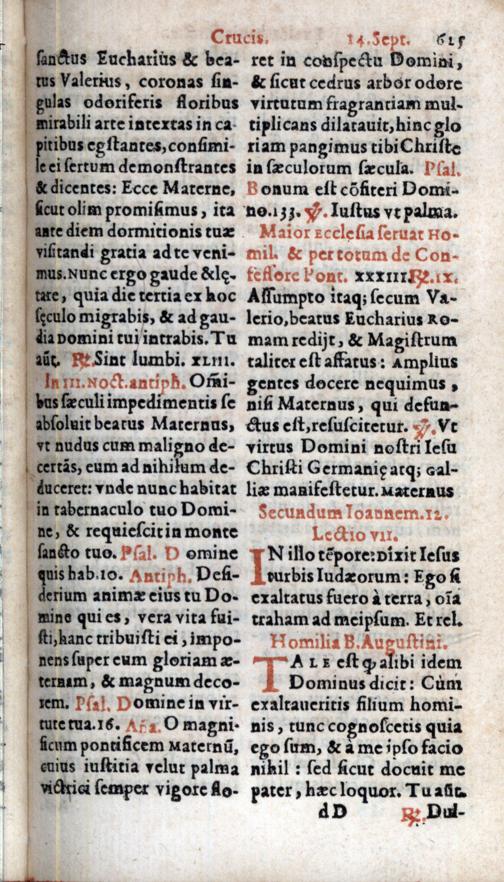 Crucis. 14. Sept. 615
sanctus Eucharius & bea-
tus Valerius, coronas sin-
gulas odoriferis floribus
mirabili arte intextas in ca-
pitibus egstantes, consimi-
le ei sertum demonstrantes
& dicentes: Ecce Materne,
sicut olim promisimus, ita
ante diem dormitionis tuæ
visitandi gratia ad te veni-
mus. Nunc ergo gaude & lę-
tare, quia die tertia ex hoc
sęculo migrabis, & ad gau-
dia Domini tui intrabis. Tu
aūt. ℟. Sint lumbi. XLIII.
In III. Noct. antiph. Om̄i-
bus sæculi impedimentis se
absoluit beatus Maternus,
vt nudus cum maligno de-
certās, eum ad nihilum de-
duceret: vnde nunc habitat
in tabernaculo tuo Domi-
ne, & requiescit in monte
sancto tuo. Psal. Domine
quis hab. 10. Antiph. Desi-
derium animæ eius tu Do-
mine qui es, vera vita fui-
sti, hanc tribuisti ei, impo-
nens super eum gloriam æ-
ternam, & magnum deco-
rem. Psal. Domine in vir-
tute tua. 16. Añа. O magni-
ficum pontificem Maternū,
cuius iustitia velut palma
victrici semper vigore flo-
ret in conspectu Domini,
& sicut cedrus arbor odore
virtutum fragrantiam mul-
tiplicans dilatauit, hinc glo
riam pangimus tibi Christe
in sæculorum sæcula. Psal.
Bonum est cōfiteri Domi-
no. 133. ℣. Iustus vt palma.
Maior Ecclesia seruat Ho-
mil. & per totum de Con-
fessore Pont. XXXIII. ℟. IX.
Assumpto itaq; secum Va-
lerio, beatus Eucharius Ro-
mam redijt, & Magistrum
taliter est affatus: Amplius
gentes docere nequimus,
nisi Maternus, qui defun-
ctus est, resuscitetur. ℣. Vt
virtus Domini nostri Iesu
Christi Germanię atq; Gal-
liæ manifestetur. Maternus
Secundum Ioannem. 12.
Lectio VII.
IN illo tēpore: Dixit Iesus
turbis Iudæorum: Ego si
exaltatus fuero à terra, oīa
traham ad meipsum. Et rel.
Homilia B. Augustini.
TALE est q̨ alibi idem
Dominus dicit: Cùm
exaltaueritis filium homi-
nis, tunc cognoscetis quia
ego sum, & à me ipso facio
nihil: sed sicut docuit me
pater, hæc loquor. Tu aūt.
dD ℟. Dul-